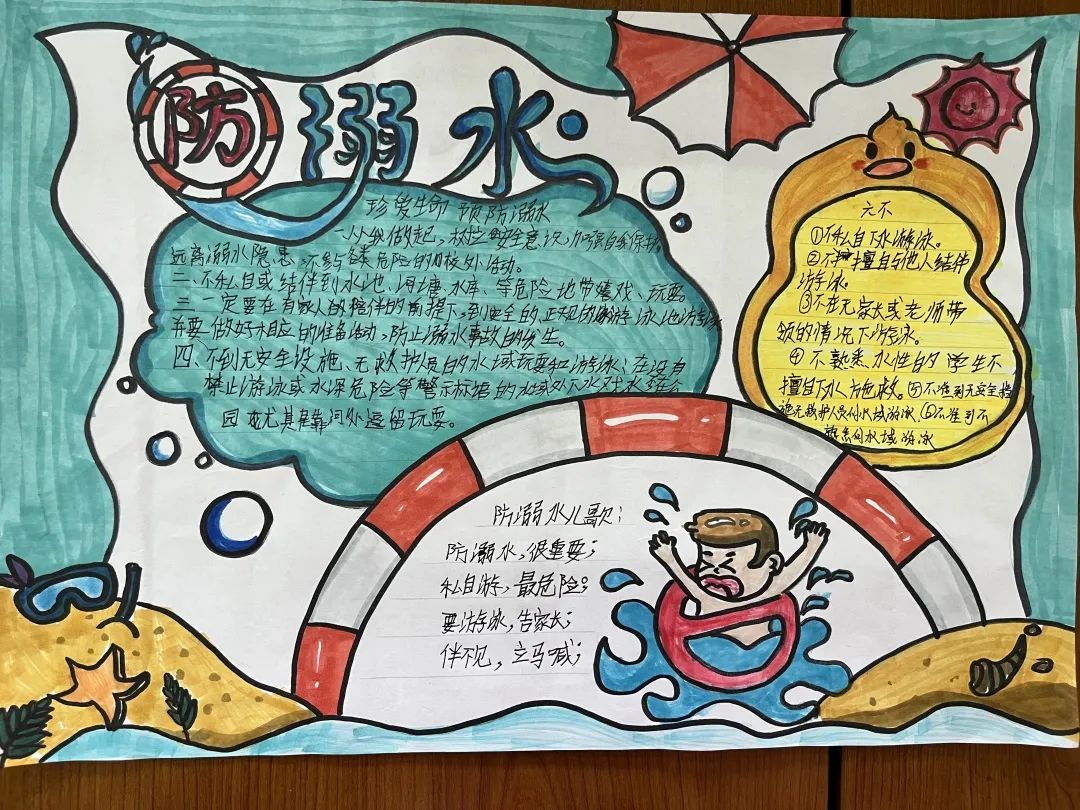 防溺水
珍爱生命 预防溺水
一从我做起，树立安全意识，加强自我保护
远离溺水隐患 不参 危险的 校外活动。
二、不私自或结伴到水池、河塘、水库、等危险地带嬉戏、玩耍。
三 一定要在有家人的陪伴的前提下，到安全的正规的 游泳池游泳
并要做好相应的准备活动，防止溺水事故的发生。
四、不到无安全设施、无救护员的水域玩耍和游泳；在设有
禁止游泳或水深危险等警示标语的水域处下水对水
园 或尤其是靠河处逗留玩耍。
六不
①不私自下水游泳。
②不 擅自与他人结伴
游泳。
③不在无家长或老师带
领的情况下游泳。
④不熟悉水性的学生不
擅自下水施救。⑤不准到无安全措
施无救护人员的水域游泳、⑥不准到不
熟悉的水域游泳
防溺水儿歌：
防溺水，很重要；
私自游，最危险；
要游泳，告家长；
伴不见，立马喊；